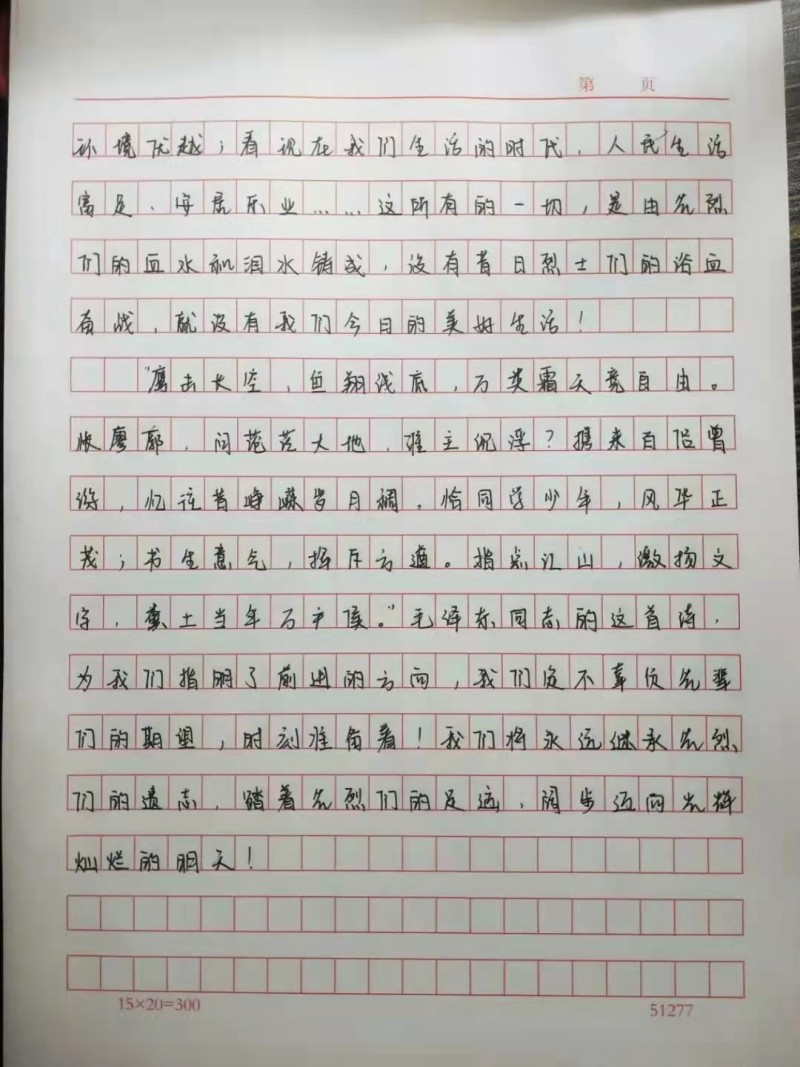 第 页
环境优越；看现在我们生活的时代，人民生活
富足、安居乐业……这所有的一切，是由先烈
们的血水和泪水铸成，没有昔日烈士们的浴血
奋战，就没有我们今日的美好生活！
“鹰击长空，鱼翔浅底，万类霜天竞自由。
怅廖廓，问苍茫大地，谁主沉浮？携来百侣曾
游，忆往昔峥嵘岁月稠。恰同学少年，风华正
茂；书生意气，挥斥方遒。指点江山，激扬文
字，粪土当年万户侯。”毛泽东同志的这首诗，
为我们指明了前进的方向，我们定不辜负先辈
们的期望，时刻准备着！我们将永远继承先烈
们的遗志，踏着先烈们的足迹，阔步迈向光辉
灿烂的明天！
15×20=300
51277